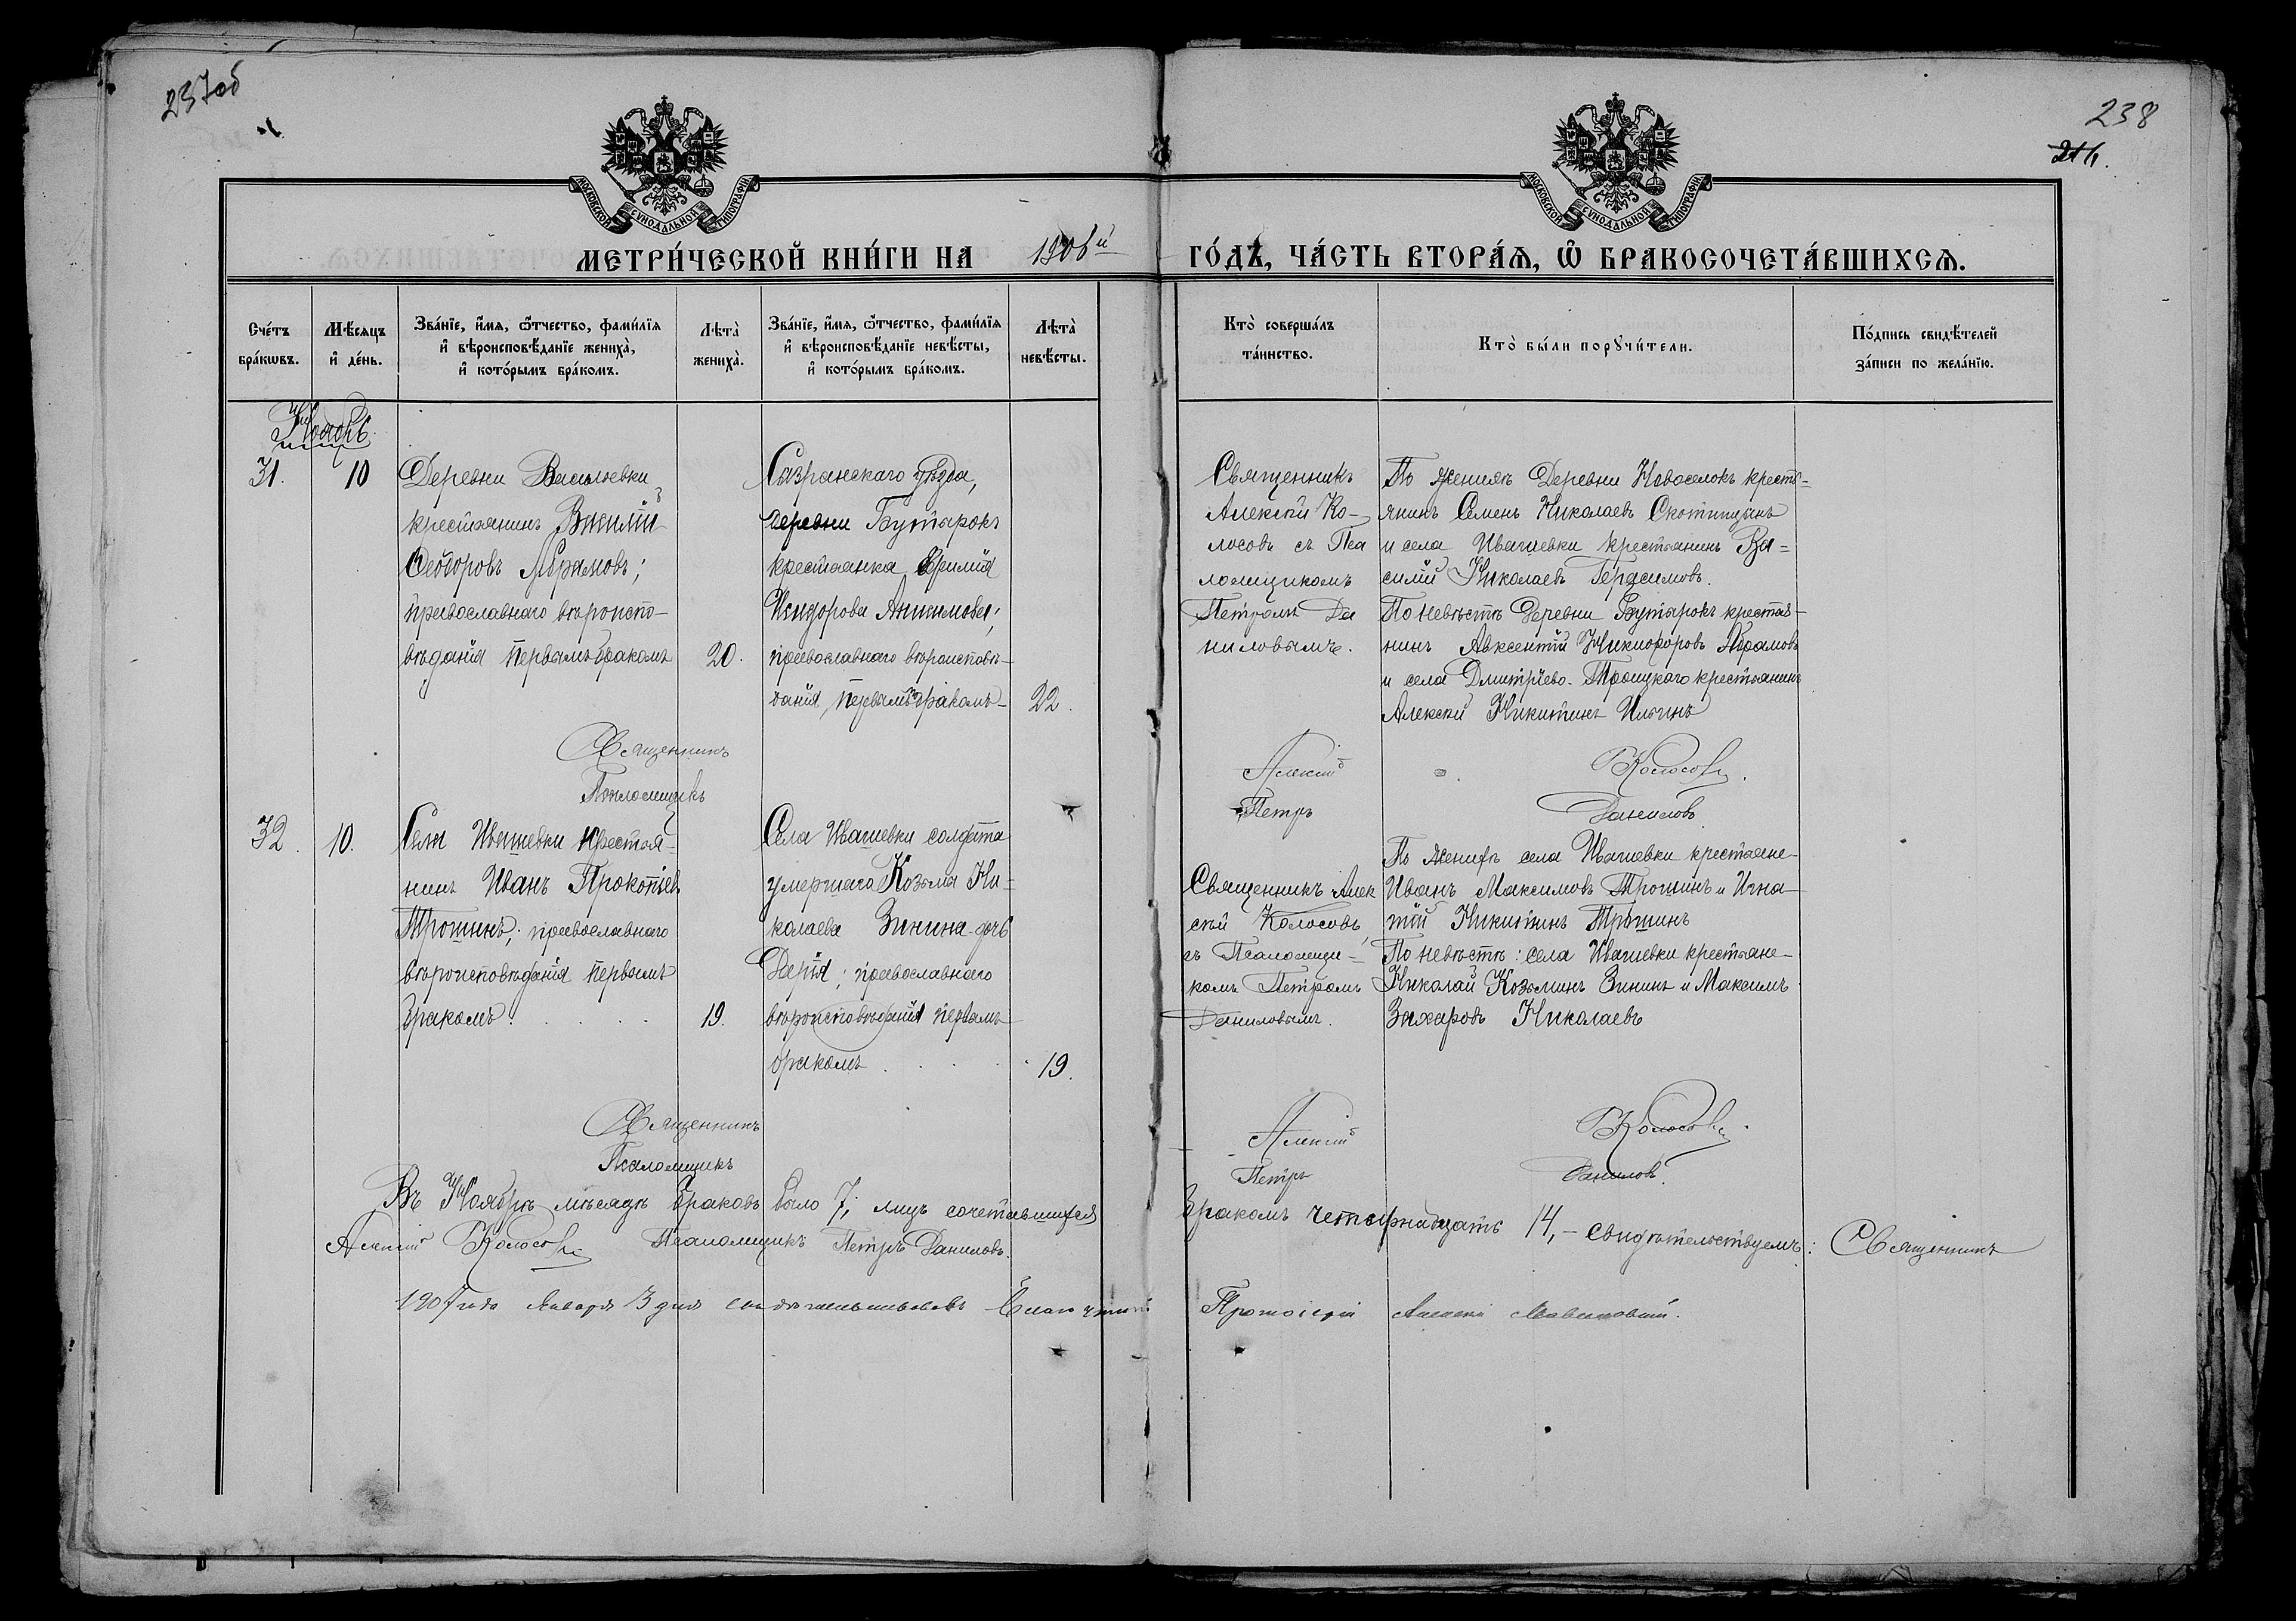 237об
238
МОСКОВСКОЙ СѴНОДАЛЬНОЙ ТИПОГРАФІИ
МОСКОВСКОЙ СѴНОДАЛЬНОЙ ТИПОГРАФІИ
МЕТРИ́ЧЕСКОЙ КНИ́ГИ НА 1906й ГО́ДЪ, ЧА́СТЬ ВТОРА́Я, Ѡ҆ БРАКОСОЧЕТА́ВШИХСЯ.
Сче́тъ бра́кѡвъ.
Мѣ́сяцъ и҆ де́нь.
Зва́нїе, и҆́мя, ѻ҆́тчество, фами́лїя и҆ вѣроисповѣ́данїе жениха̀, и҆ кото́рымъ бра́комъ.
Лѣта̀ жениха̀.
Зва́нїе, и҆́мя, ѻ҆́тчество, фами́лїя и҆ вѣроисповѣ́данїе невѣ́сты, и҆ кото́рымъ бра́комъ.
Лѣта̀ невѣ́сты.
Кто̀ соверша́лъ та́инство.
Кто̀ бы́ли порꙋчи́тели.
По́дпись свидѣ́телей за́писи по жела́нїю.
Ноябрь
31.
10
Деревни Васильевки
крестьянинъ Василій
Ѳеодоровъ
православнаго вѣроиспо-
вѣданія первымъ бракомъ
20.
Сызранскаго уѣзда,
деревни Бутырокъ
крестьянка
православнаго вѣроисповѣ-
данія, первымъ бракомъ
22.
Священникъ
Алексій Ко-
лосовъ съ Пса
ломщикомъ
Петромъ Да
ниловымъ.
По женихѣ Деревни Новоселокъ кресть-
янинъ Семенъ Николаевъ
и села Ивашевки крестьянинъ Ва-
силій Николаевъ Герасимовъ.
По невѣстѣ Деревни Бутырокъ крестья-
нинъ Авксентій Никифоровъ Абрамовъ
и села Дмитріево-Троицкаго крестьянинъ
Алексѣй Никитинъ Ильинъ
Священникъ Алексій Колосовъ.
Псаломщикъ Петръ Даниловъ
32.
10.
Села Ивашевки крестья-
нинъ Иванъ Прокопіевъ
Трошинъ; православнаго
вѣроисповѣданія первымъ
бракомъ.
19.
Села Ивашевки солдата
умершаго Козьма Ни-
колаева Зинина дочь
Дарія; православнаго
вѣроисповѣданія первымъ
бракомъ
19.
Священникъ Алек
сѣй Колосовъ
съ Псаломщи-
комъ Петромъ
Даниловымъ.
По женихѣ села Ивашевки крестьяне
Иванъ Максимовъ Трошинъ и Игна
тій Никитинъ Трошинъ
По невѣстѣ: села Ивашевки крестьяне
Николай Козьминъ Зининъ и Максимъ
Захаровъ Николаевъ
Священникъ Алексій Колосовъ.
Псаломщикъ Петръ Даниловъ.
Въ Ноябрѣ мѣсяцѣ браковъ было 7; лицъ сочетавшихся бракомъ четырнадцать 14,- свидѣтельствуемъ: Священникъ
Алексій Колосовъ Псаломщикъ Петръ Даниловъ.
1907 года Января 3 дня свидѣтельствовалъ Благочинный Протоіерей Алексій